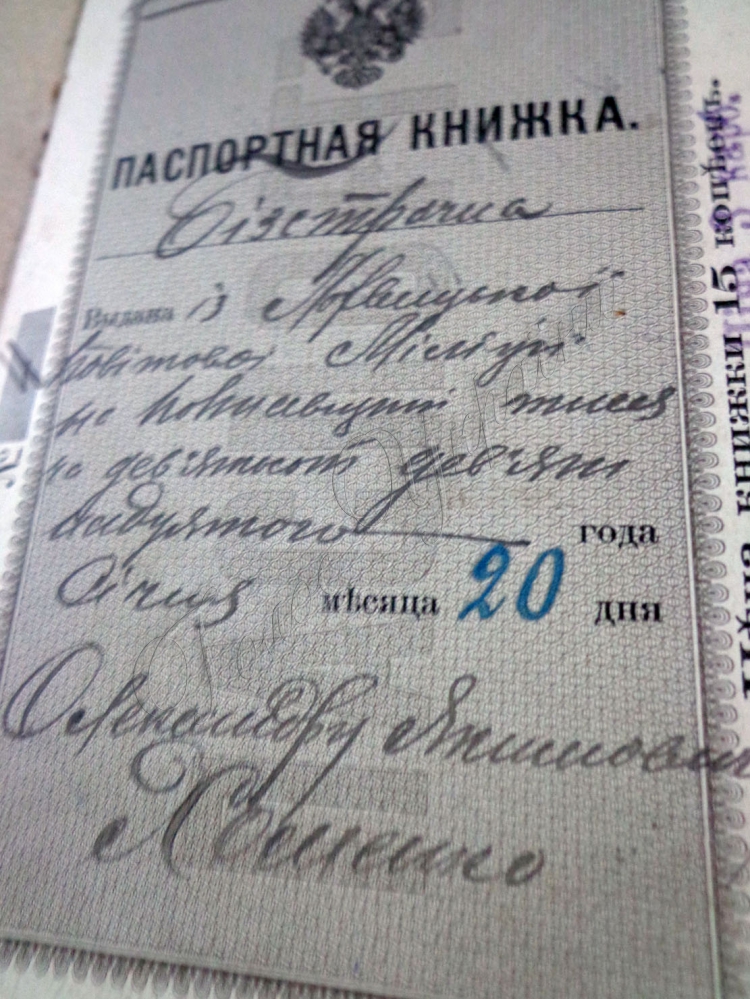 ПАСПОРТНАЯ КНИЖКА.
Безстрочна
Выдана із
Повітової Міліції
тися
дев'ятьсот дев'ят
надцятого года
Січня мѣсяца 20 дня
Олександру Якимович
Хоменко
Цѣна книжки 15 копѣекъ.